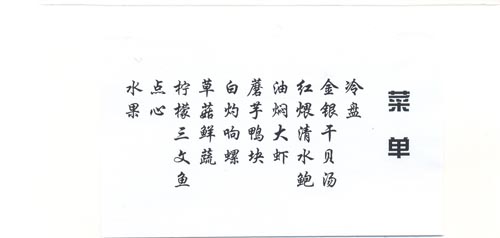 菜单
冷盘
金银干贝汤
红煨清水鲍
油焖大虾
蘑芋鸭块
白灼响螺
草菇鲜蔬
柠檬三文鱼
点心
水果